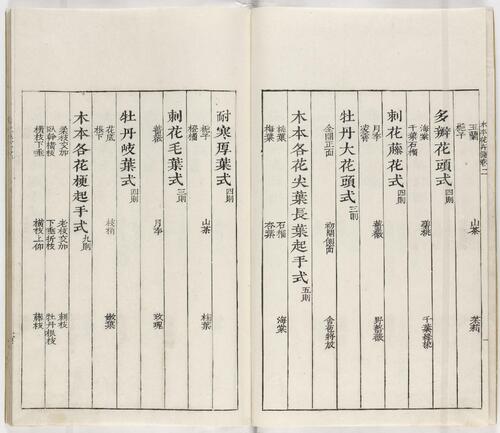 玉蘭 山茶 茉莉
梔子
多瓣花頭式 四則
海棠 碧桃 千葉緋桃
千葉石榴
刺花藤花式 四則
月季 薔薇 野薔薇
凌霄
牡丹大花頭式 三則
全開正面 初開側面 含苞將放
木本各花尖葉長葉起手式 五則
石榴 海棠
梅葉 杏葉
耐寒厚葉式 四則
梔子 山茶 桂葉
橙橘
刺花毛葉式 三則
薔薇 月季 玫瑰
牡丹岐葉式 四則
花底 枝梢 嫩葉
根下
木本各花梗起手式 九則
柔枝交加 老枝交加 刺枝
臥幹橫枝 下垂折枝 牡丹根枝
橫枝下垂 橫枝上仰 藤枝